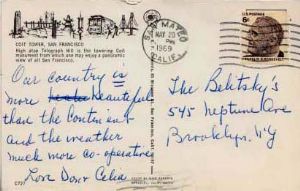 COIT TOWER, SAN FRANCISCO
High atop Telegraph Hill is the towering Coit
monument from which one may enjoy a panoramic
view of all San Francisco.
SAN MATEO
MAY 20
PM
1969
CALIF.
U.S. POSTAGE
6¢
FRANKLIN D. ROOSEVELT
Our country is
more beautiful
than the Continent
and the weather
much more co-operative
Love Celia
The Belitsky's
545 Neptune Ave
Brooklyn. NY
C737